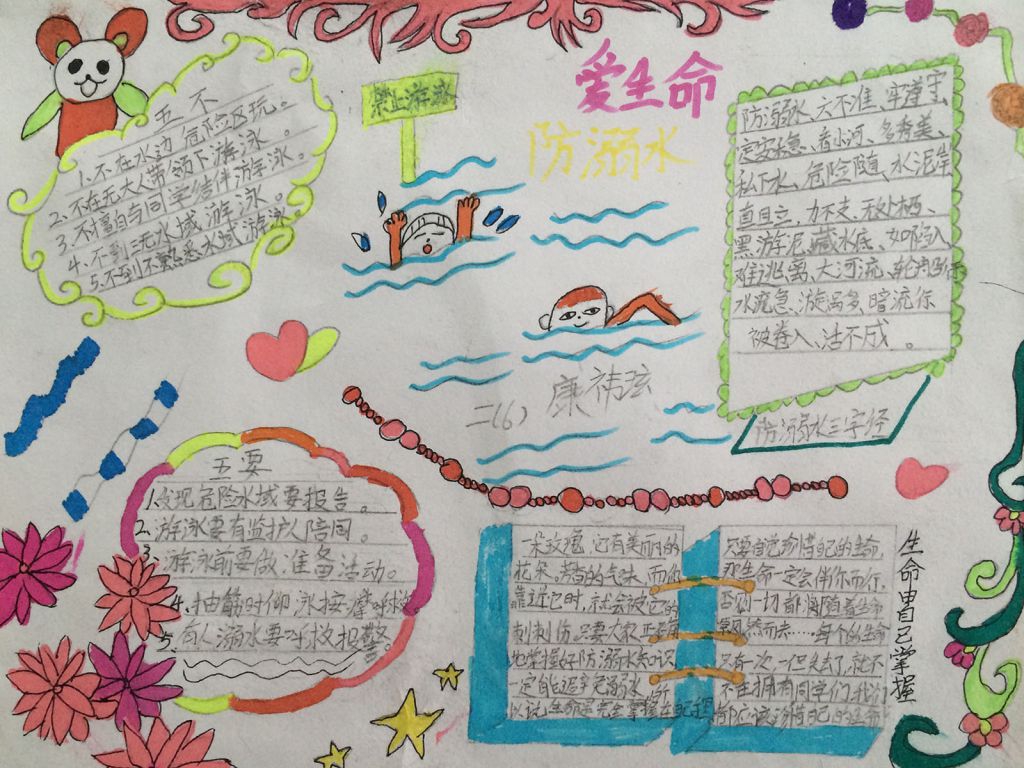 爱生命
防溺水
禁止游泳
五不
1.不在水边危险区玩。
2.不在无大人带领下游泳。
3.不擅自与同学结伴游泳。
4.不到三无水域游泳。
5.不到不熟悉水域游泳。
防溺水、六不准、牢遵守、
看小河、多秀美、
私下水、危险随、水泥岸
直且立、力不支、无处栖、
黑游泥、藏水底、如陷入
难逃离、大河流、轮船
水流急、漩涡多、暗流你
被卷入、活不成。
防溺水三字经
二(6) 康祎弦
五要
1.发现危险水域要报告。
2.游泳要有监护人陪同。
3.游泳前要做准备活动。
4.抽筋时仰泳按摩呼救
5.有人溺水要呼救报警。
一朵玫瑰,它有美丽的
花朵。芳香的气味,而你
靠近它时,就会被它的
刺刺伤。只要大家正确
地掌握好防溺水知识
一定能远离溺水。所
以说,生命是完全掌握在自己
只要自觉珍惜自己的生命,
那生命一定会伴你而行,
否则一切都将随着生命
飘然而去……每个的生命
只有一次,一但失去了,就不
不在拥有同学们,我们
都应该珍惜自己的生命
生命由自己掌握